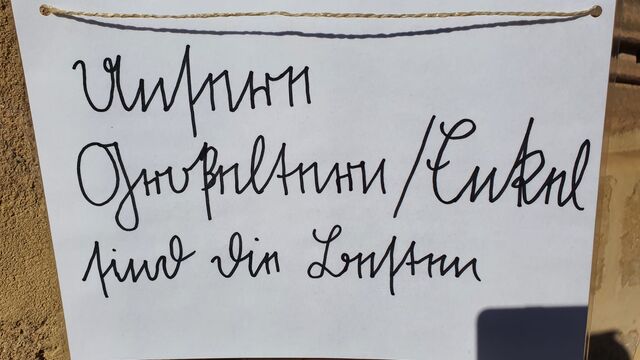 Unsere
Großeltern/Enkel
sind die Besten